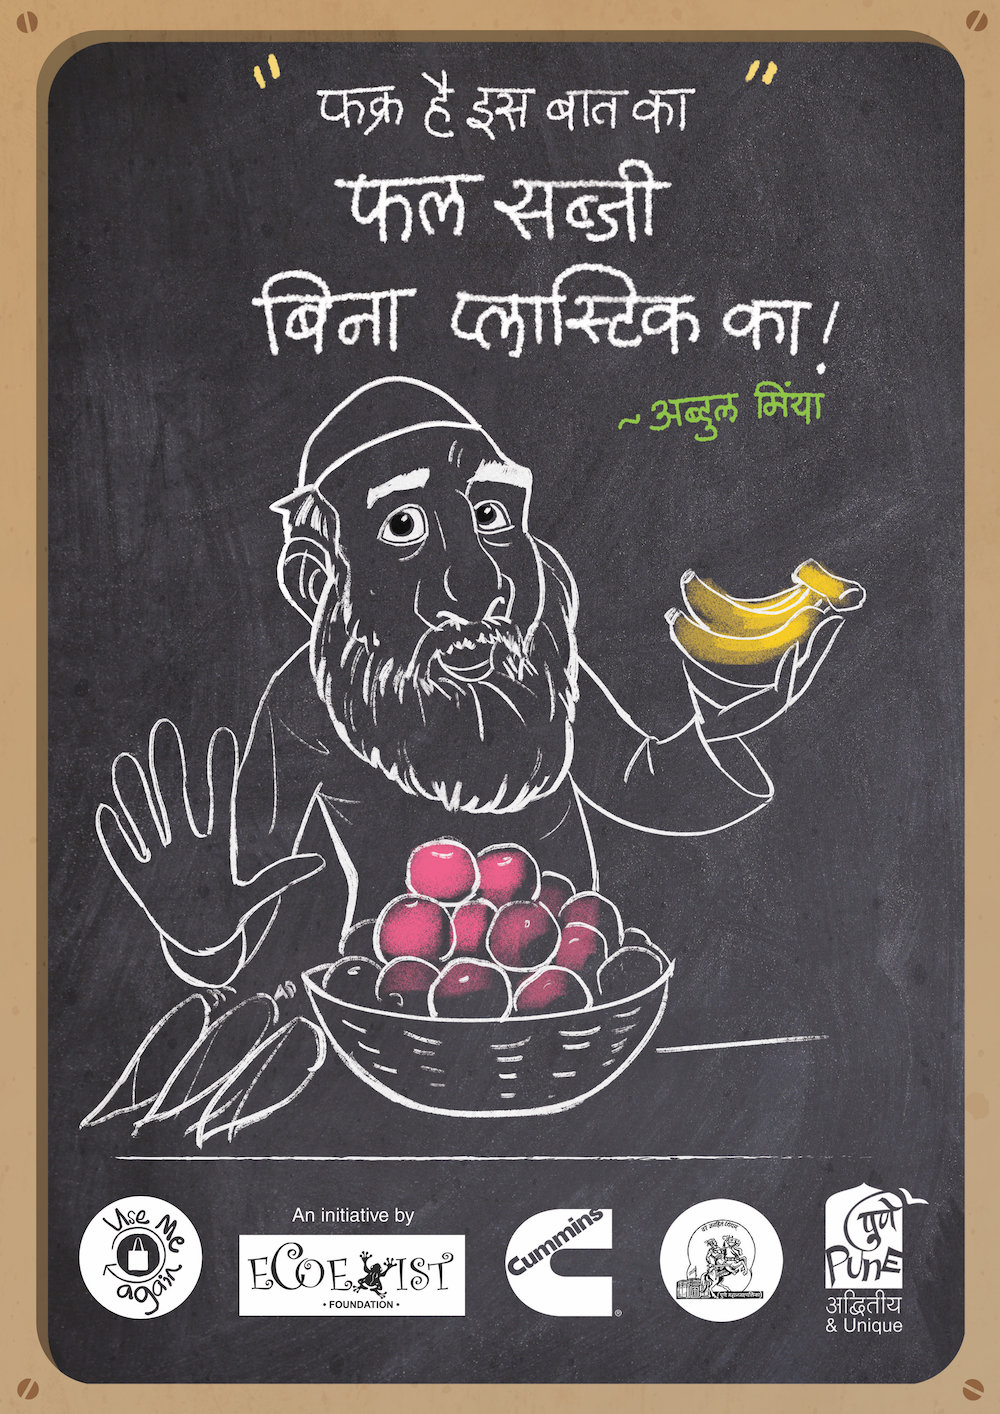 " फक्र है इस बात का "
फल सब्जी
बिना प्लास्टिक का!
~ अब्दुल मिंया
Use Me again
An initiative by
ECOEXIST
• FOUNDATION •
Cummins
®
पुणे
PUNE
अद्वितीय
& Unique